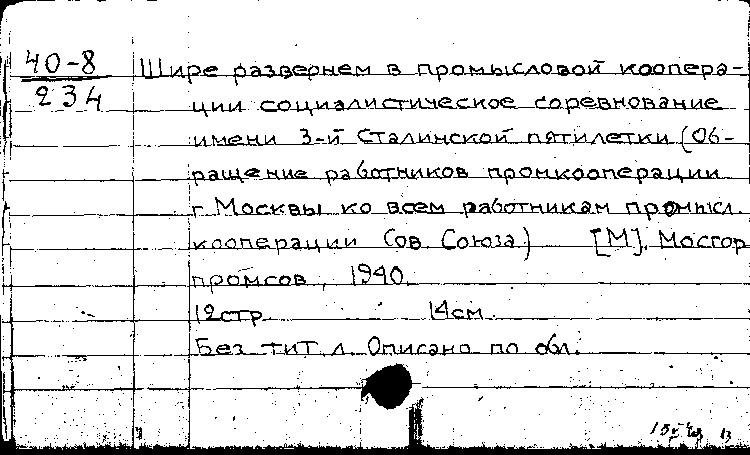 40-8
234
Шире развернем в промысловой коопера-
ции социалистическое соревнование
имени 3-й Сталинской пятилетки (Об-
ращение работников промкооперации
г Москвы ко всем работникам промысл.
кооперации Сов. Союза) [М]. Мосгор
промсов, 1940.
12стр. 14см.
Без тит л. Описано по обл.